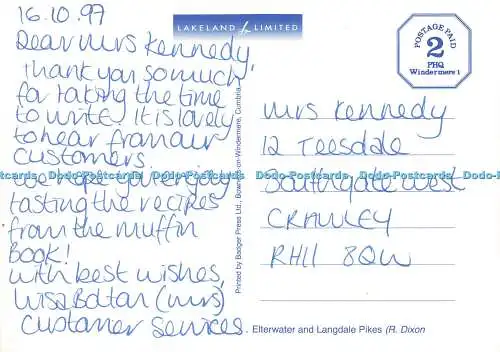 16.10.97
Dear Mrs Kennedy,
Thank you so much
for taking the time
to write. It is lovely
to hear from our
customers.
We hope you enjoy
tasting the recipes
from the muffin
Book!
With best wishes,
(Mrs)
Customer Services.
LAKELAND LIMITED
POSTAGE PAID
2
PHQ
Windermere 1
Mrs Kennedy
12 Teesdale
Southgate West
CRAWLEY
RH11 8QW
Printed by Badger Press Ltd., Bowness-on-Windermere, Cumbria.
Elterwater and Langdale Pikes (R. Dixon
Dodo-Postcards Dodo-Postcards Dodo-Postcards Dodo-Postcards Dodo-Postcards Dodo-Postcards